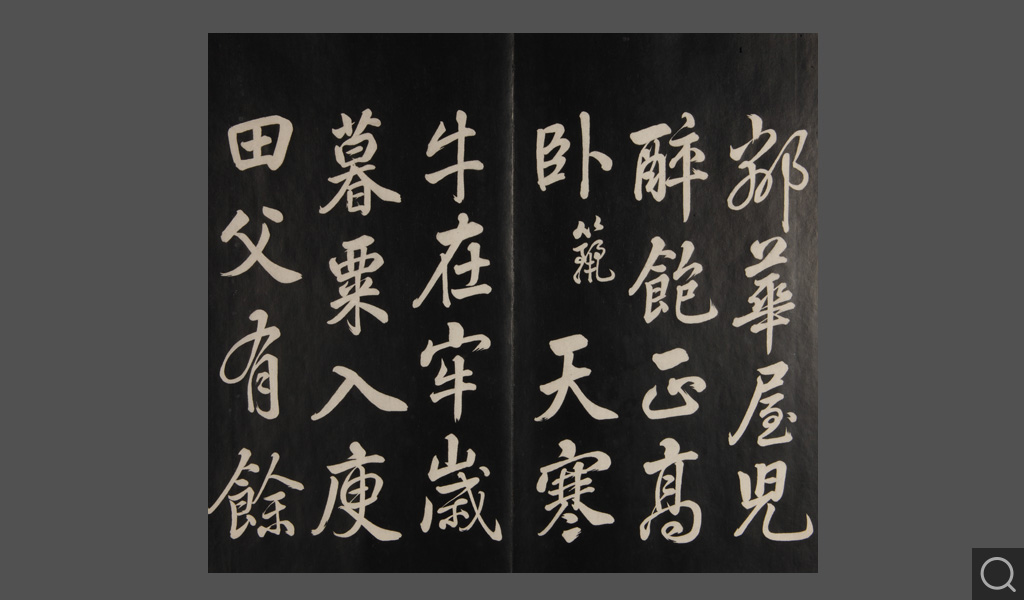 鄰華屋兒
醉飽正高
卧 天寒
牛在牢歲
暮粟入庾
田父有餘